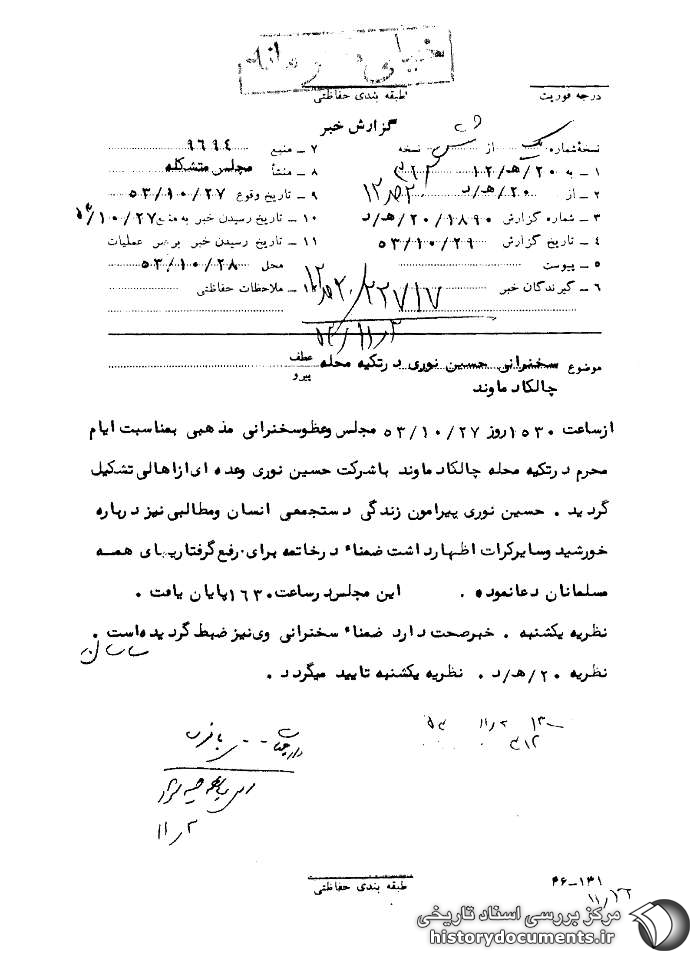 درجه فوریت
طبقه بندی حفاظتی
گزارش خبر
نسخه شماره یک از نسخه
۱ – به ۲۰/هـ/۱۲ ۳۱۲
۲ – از ۲۰/هـ/د
۳ – شماره گزارش ۲۰/۱۸۹۰/هـ/د
۴ – تاریخ گزارش ۵۳/۱۰/۲۹
۵ – پیوست
۶ – گیرندگان خبر
۷ – منبع ۹۶۹۴
۸ – منشأ مجلس متشکله
۹ – تاریخ وقوع ۵۳/۱۰/۲۷
۱۰ – تاریخ رسیدن خبر به منبع ۵۳/۱۰/۲۷
۱۱ – تاریخ رسیدن خبر به رهبر عملیات
محل ۵۳/۱۰/۲۸
۱۲ – ملاحظات حفاظتی
۲۲۷۱۷
۵۳/۱۱/۳
موضوع سخنرانی حسین نوری در تکیه محله چالکا دماوند
عطف
پیرو
از ساعت ۱۵۳۰ روز ۵۳/۱۰/۲۷ مجلس وعظ و سخنرانی مذهبی بمناسبت ایام
محرم در تکیه محله چالکا دماوند با شرکت حسین نوری و عده ای از اهالی تشکیل
گردید . حسین نوری پیرامون زندگی دستجمعی انسان و مطالبی نیز درباره
خورشید و سایر کرات اظهار داشت ضمناً در خاتمه برای رفع گرفتاریهای همه
مسلمانان دعا نموده . این مجلس در ساعت ۱۶۳۰ پایان یافت .
نظریه یکشنبه . خبر صحت دارد ضمناً سخنرانی وی نیز ضبط گردیده است .
نظریه ۲۰/هـ/د . نظریه یکشنبه تایید میگردد .
۳۱۲
۱۱/۳
طبقه بندی حفاظتی
۳۶–۱۳۱
مرکز بررسی اسناد تاریخی
historydocuments.ir